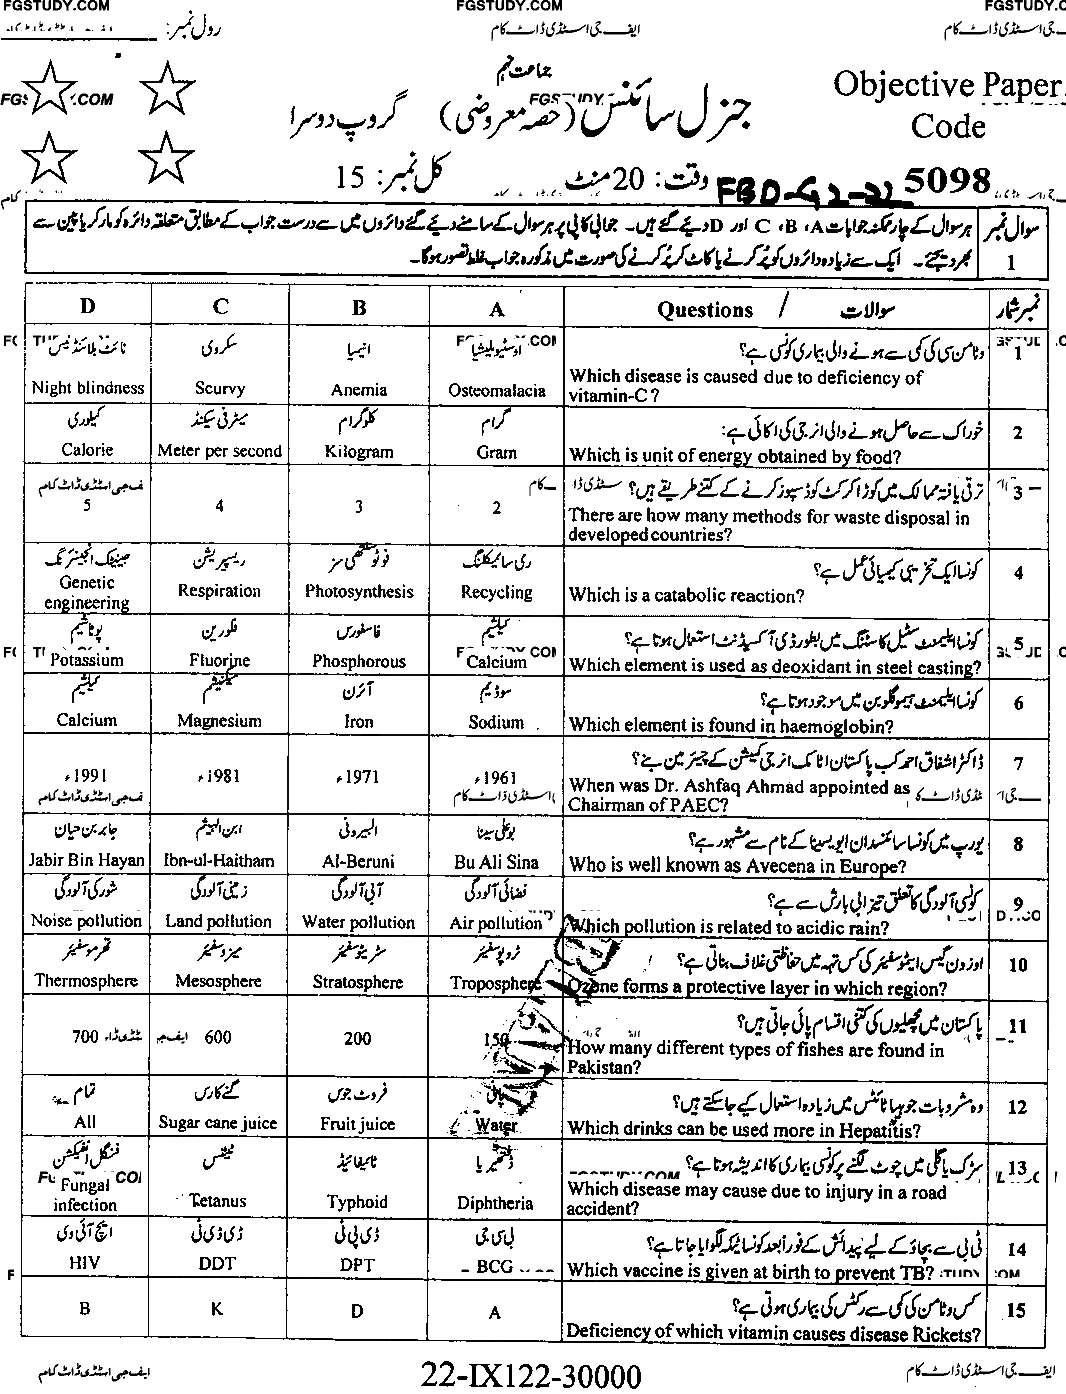 FGSTUDY.COM FGSTUDY.COM FGSTUDY.C
ایف جی اسٹڈی ڈاٹ کام
رول نمبر:
جماعت نہم
Objective Paper
Code
5098
جنرل سائنس (حصہ معروضی) گروپ دوسرا
وقت: 20 منٹ کل نمبر: 15
FBD-G2-22
سوال نمبر 1
ہر سوال کے چار ممکنہ جوابات A، B، C اور D دیئے گئے ہیں۔ جوابی کاپی پر ہر سوال کے سامنے دیئے گئے دائروں میں سے درست جواب کے مطابق متعلقہ دائرہ کو مارکر یا پین سے
بھر دیجئے۔ ایک سے زیادہ دائروں کو پُر کرنے یا کاٹ کر پُر کرنے کی صورت میں مذکورہ جواب غلط تصور ہوگا۔
D C B A Questions / سوالات نمبر شمار
نائٹ بلائنڈنیس سکروی انیمیا اوسٹیوملیشیا وٹامن سی کی کمی سے ہونے والی بیماری کونسی ہے؟ 1
Night blindness Scurvy Anemia Osteomalacia Which disease is caused due to deficiency of
vitamin-C?
کیلوری میٹر فی سیکنڈ کلوگرام گرام خوراک سے حاصل ہونے والی انرجی کی اکائی ہے: 2
Calorie Meter per second Kilogram Gram Which is unit of energy obtained by food?
ترقی یافتہ ممالک میں کوڑا کرکٹ کو ڈسپوز کرنے کے کتنے طریقے ہیں؟ 3
5 4 3 2 There are how many methods for waste disposal in
developed countries?
جینیٹک انجینئرنگ ریسپریشن فوٹوسنتھی سز ری سائیکلنگ کونسا ایک تخریبی کیمیائی عمل ہے؟ 4
Genetic
engineering Respiration Photosynthesis Recycling Which is a catabolic reaction?
پوٹاشیم فلورین فاسفورس کیلشیم کونسا ایلیمنٹ سٹیل کاسٹنگ میں بطور ڈی آکسیڈنٹ استعمال ہوتا ہے؟ 5
Potassium Fluorine Phosphorous Calcium Which element is used as deoxidant in steel casting?
کیلشیم میگنیشیم آئرن سوڈیم کونسا ایلیمنٹ ہیموگلوبن میں موجود ہوتا ہے؟ 6
Calcium Magnesium Iron Sodium Which element is found in haemoglobin?
ڈاکٹر اشفاق احمد کب پاکستان اٹامک انرجی کمیشن کے چیئرمین بنے؟ 7
1991ء 1981ء 1971ء 1961ء When was Dr. Ashfaq Ahmad appointed as
Chairman of PAEC?
جابر بن حیان ابن الہیثم البیرونی بوعلی سینا یورپ میں کونسا سائنسدان ایویسینا کے نام سے مشہور ہے؟ 8
Jabir Bin Hayan Ibn-ul-Haitham Al-Beruni Bu Ali Sina Who is well known as Avecena in Europe?
شور کی آلودگی زمینی آلودگی آبی آلودگی فضائی آلودگی کونسی آلودگی کا تعلق تیزابی بارش سے ہے؟ 9
Noise pollution Land pollution Water pollution Air pollution Which pollution is related to acidic rain?
تھرموسفیئر میزوسفیئر سٹریٹوسفیئر ٹروپوسفیئر اوزون گیس ایٹموسفیئر کی کس تہہ میں حفاظتی غلاف بناتی ہے؟ 10
Thermosphere Mesosphere Stratosphere Troposphere Ozone forms a protective layer in which region?
پاکستان میں مچھلیوں کی کتنی اقسام پائی جاتی ہیں؟ 11
700 600 200 150 How many different types of fishes are found in
Pakistan?
تمام گنے کا رس فروٹ جوس پانی وہ مشروبات جو ہیپاٹائٹس میں زیادہ استعمال کیے جاسکتے ہیں؟ 12
All Sugar cane juice Fruit juice Water Which drinks can be used more in Hepatitis?
فنگل انفیکشن ٹیٹنس ٹائیفائیڈ ڈفتھیریا سڑک یا گلی میں چوٹ لگنے پر کونسی بیماری کا اندیشہ ہوتا ہے؟ 13
Fungal
infection Tetanus Typhoid Diphtheria Which disease may cause due to injury in a road
accident?
ایچ آئی وی ڈی ڈی ٹی ڈی پی ٹی بی سی جی ٹی بی سے بچاؤ کے لیے پیدائش کے فوراً بعد کونسا ٹیکہ لگوایا جاتا ہے؟ 14
HIV DDT DPT BCG Which vaccine is given at birth to prevent TB?
B K D A کس وٹامن کی کمی سے رکٹس کی بیماری ہوتی ہے؟ 15
Deficiency of which vitamin causes disease Rickets?
ایف جی اسٹڈی ڈاٹ کام 22-IX122-30000 ایف جی اسٹڈی ڈاٹ کام